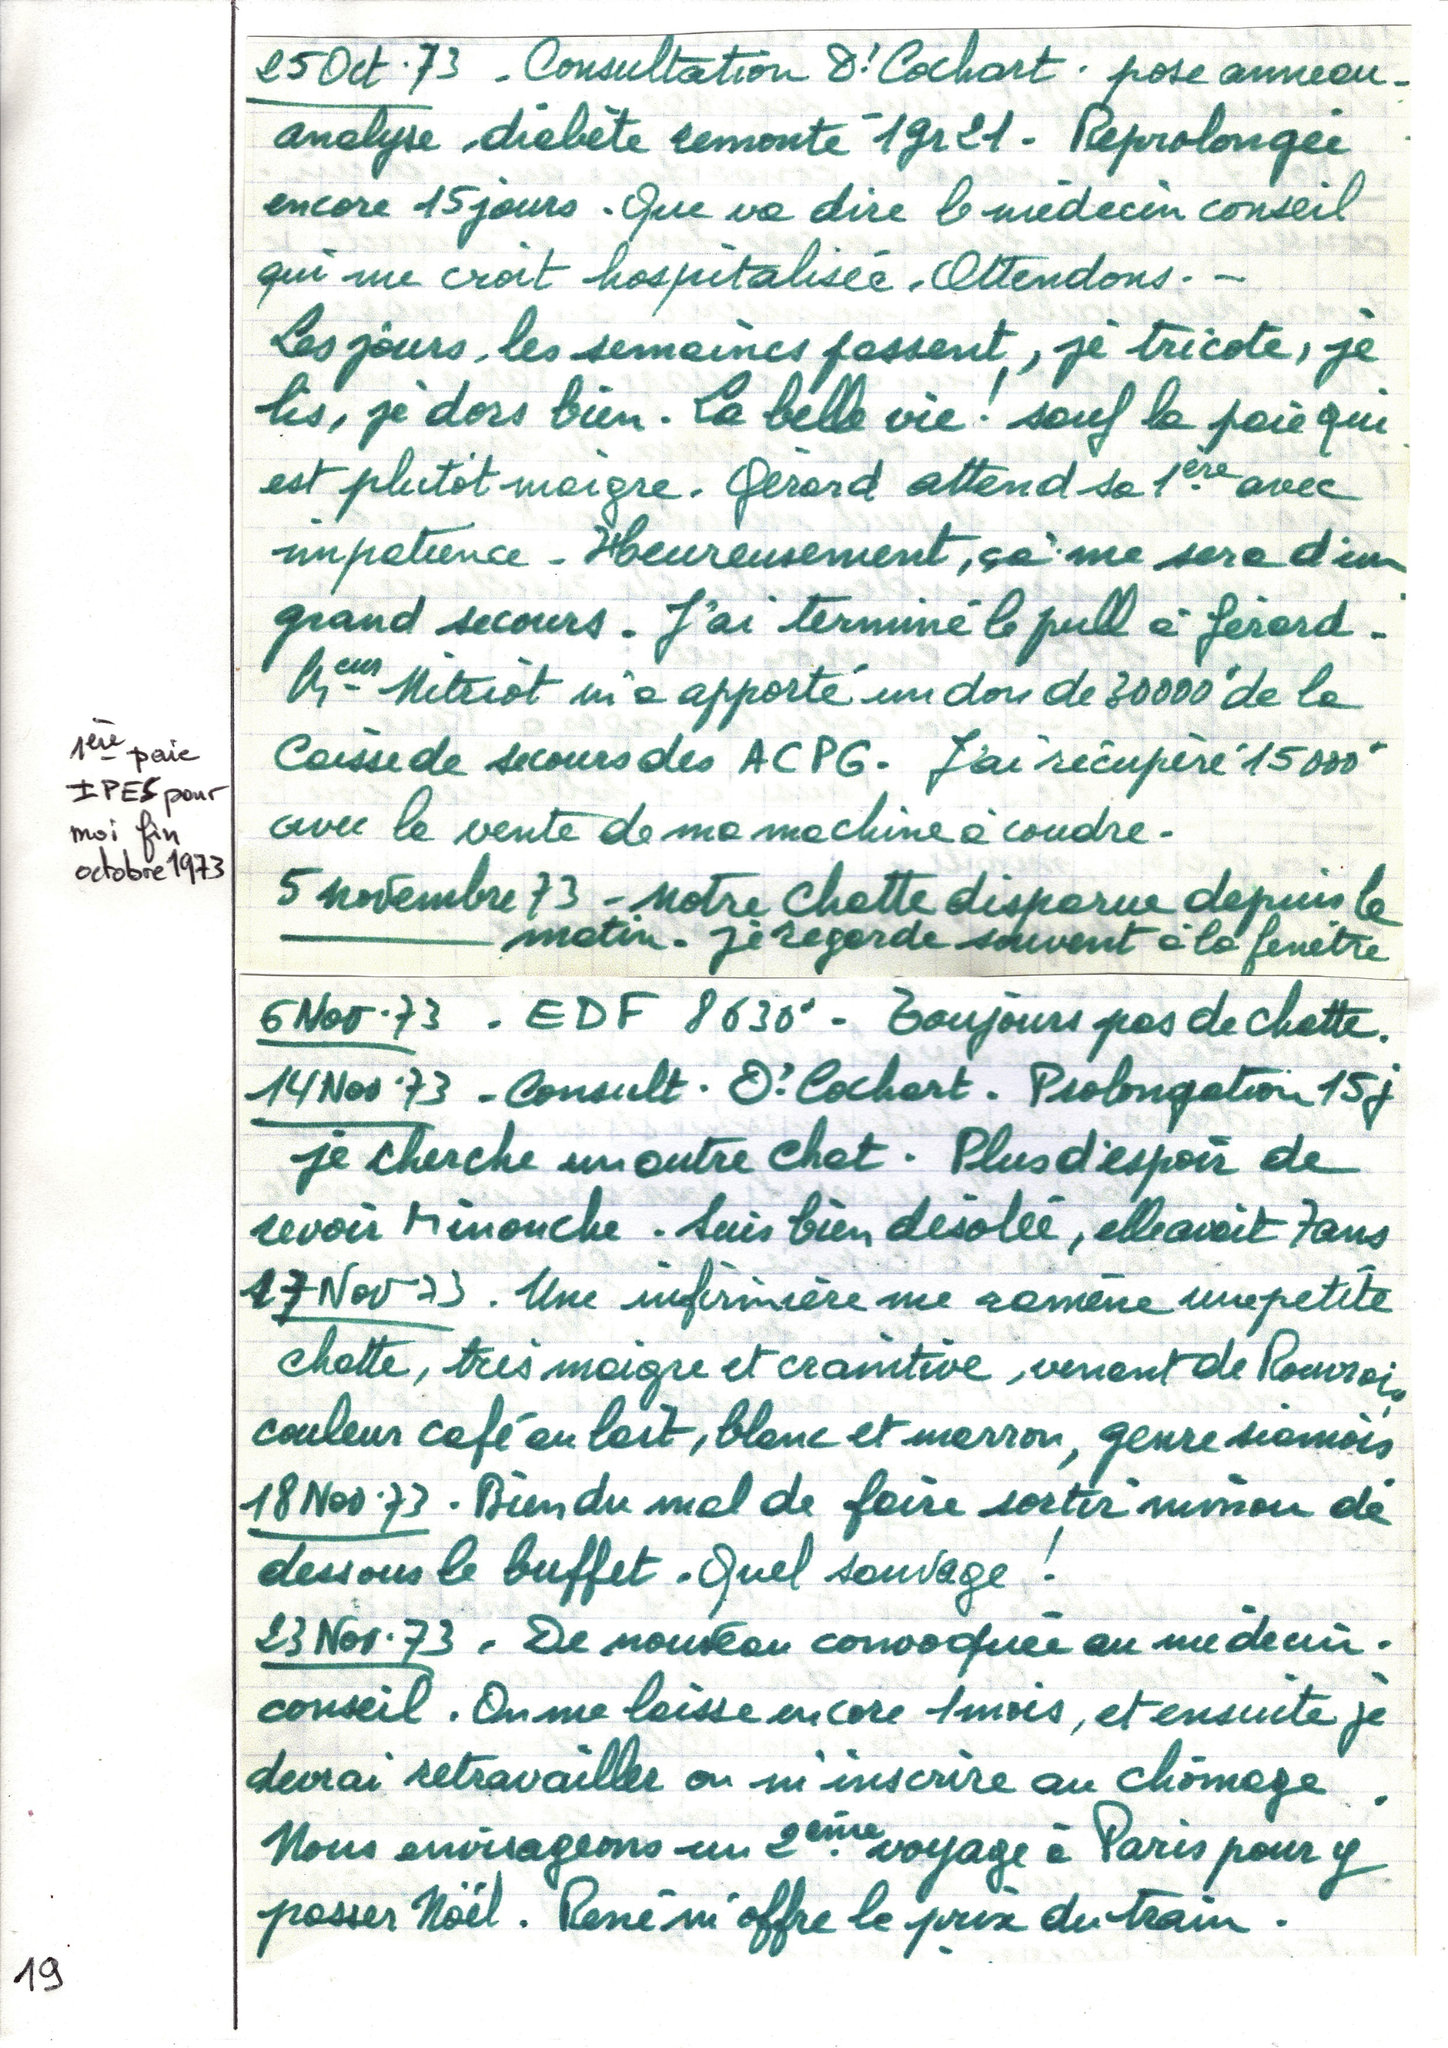 25 Oct. 73 - Consultation Dr Cochart. pose anneau -
analyse, diabète remonte 1gr21 - Reprolongée
encore 15 jours. Que va dire le médecin conseil
qui me croit hospitalisée. Attendons. -
Les jours, les semaines passent, je tricote, je
lis, je dors bien. La belle vie! sauf la paie qui
est plutôt maigre. Gérard attend sa 1ère avec
impatience - Heureusement, ça me sera d'un
grand secours. J'ai terminé le pull à Gérard.
Mitriot m'a apporté un don de 30000 de la
Caisse de secours des ACPG. J'ai récupéré 15000
avec la vente de ma machine à coudre.
1ère paie
IPES pour
moi fin
octobre 1973
5 novembre 73 - notre chatte disparue depuis le
matin. je regarde souvent à la fenêtre
6 Nov. 73 - EDF 8630 - Toujours pas de chatte.
14 Nov. 73 - Consult. Dr Cochart. Prolongation 15 j
je cherche un autre chat. Plus d'espoir de
revoir Minouche. Suis bien désolée, elle avait 7 ans
17 Nov 73. Une infirmière me ramène une petite
chatte, très maigre et craintive, venant de Rouvroi,
couleur café au lait, blanc et marron, genre siamois
18 Nov. 73. Bien du mal de faire sortir minou de
dessous le buffet. Quel sauvage!
23 Nov. 73. De nouveau convoquée au médecin -
conseil. On me laisse encore 1 mois, et ensuite je
devrai retravailler ou m'inscrire au chômage.
Nous envisageons un 2ème voyage à Paris pour y
passer Noël. René m'offre le prix du train.
19